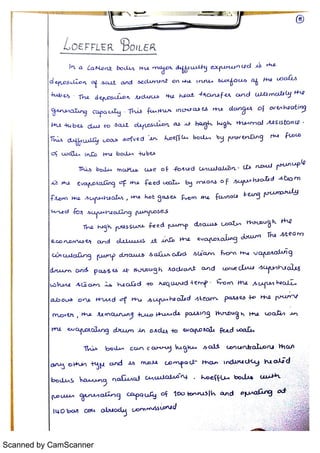 11
LOEFFLER BOILER
In a LaMont boiler the major difficulty experienced is the
deposition of salt and sediment on the inner surfaces of the water
tubes. The deposition reduces the heat transfer and ultimately the
generating capacity. This further increases the danger of overheating
the tubes due to salt deposition as it has high thermal resistance.
This difficulty was solved in Loeffler boiler by preventing the flow
of water into the boiler tubes
This boiler makes use of forced circulation. Its novel principle
is the evaporating of the feed water by means of superheated steam
from the superheater, the hot gases from the furnace being primarily
used for superheating purposes
The high pressure feed pump draws water through the
economiser and delivers it into the evaporating drum The steam
circulating pump draws saturated steam from the evaporating
drum and passes it through radiant and convective superheater
where steam is heated to required temp. From the superheater
about one third of the superheated steam passes to the prime
mover, the remaining two thirds passing through the water in
the evaporating drum in order to evaporate feed water.
This boiler can carry higher salt concentrations than
any other type and is more compact than indirectly heated
boilers having natural circulation. Loeffler boiler with
generating capacity of 100 tonnes/h and operating at
140 bar are already commissioned
Scanned by CamScanner